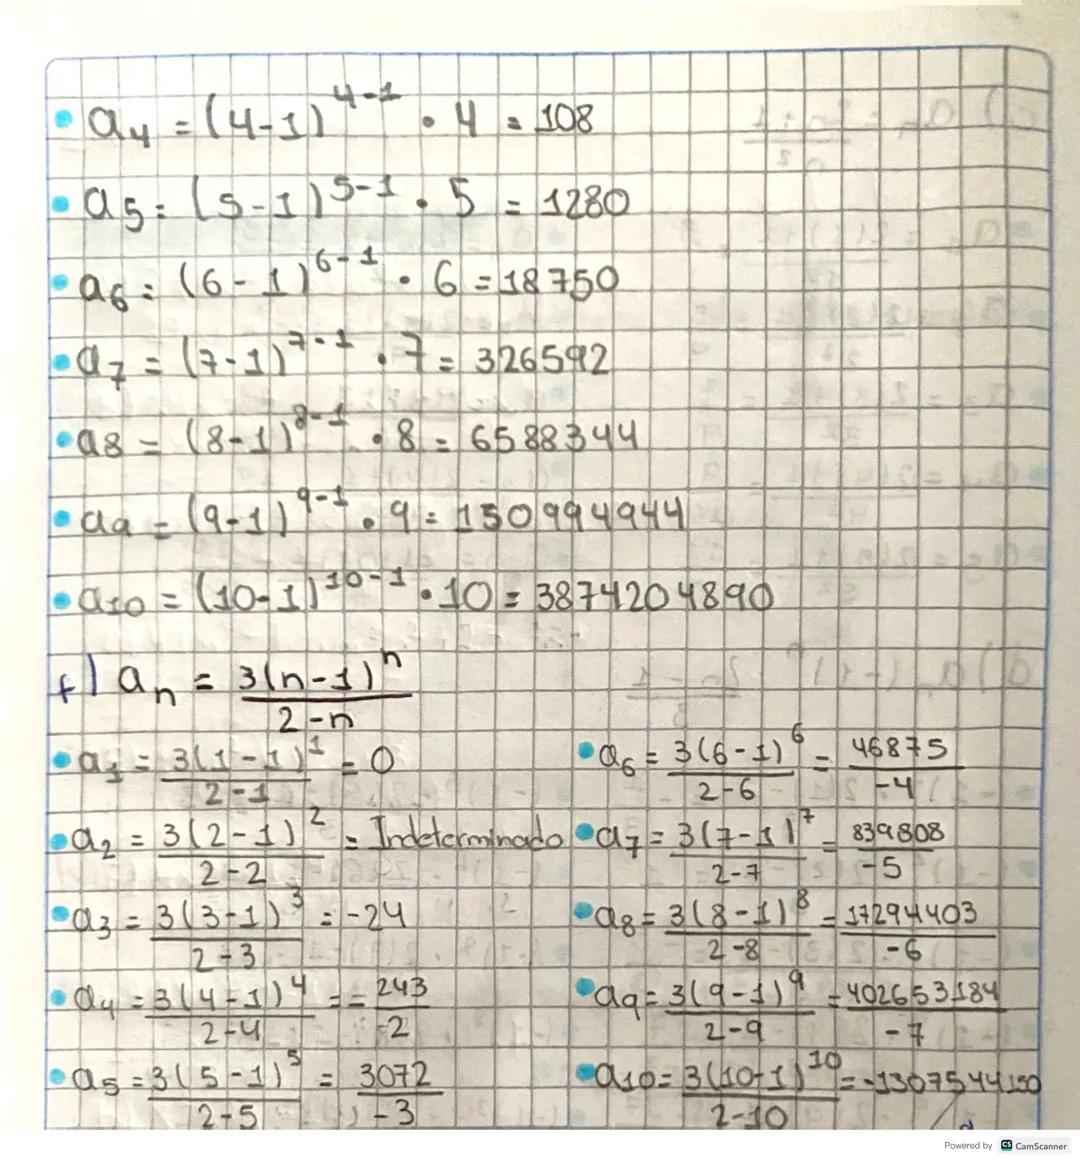 • a₄ = (4-1)⁴⁻¹ • 4 = 108
• a₅ = (5-1)⁵⁻¹ • 5 = 1280
• a₆ = (6-1)⁶⁻¹ • 6 = 18750
• a₇ = (7-1)⁷⁻¹ • 7 = 326592
• a₈ = (8-1)⁸⁻¹ • 8 = 6588344
• a₉ = (9-1)⁹⁻¹ • 9 = 150994944
• a₁₀ = (10-1)¹⁰⁻¹ • 10 = 3874204890
f) aₙ = 3(n-1)ⁿ / 2-n
• a₁ = 3(1-1)¹ / 2-1 = 0
• a₂ = 3(2-1)² / 2-2 = Indeterminado
• a₃ = 3(3-1)³ / 2-3 = -24
• a₄ = 3(4-1)⁴ / 2-4 = = 243 / -2
• a₅ = 3(5-1)⁵ / 2-5 = 3072 / -3
• a₆ = 3(6-1)⁶ / 2-6 = 46875 / -4
• a₇ = 3(7-1)⁷ / 2-7 = 839808 / -5
• a₈ = 3(8-1)⁸ / 2-8 = 17294403 / -6
• a₉ = 3(9-1)⁹ / 2-9 = 402653184 / -7
• a₁₀ = 3(10-1)¹⁰ / 2-10 =
Powered by CS CamScanner